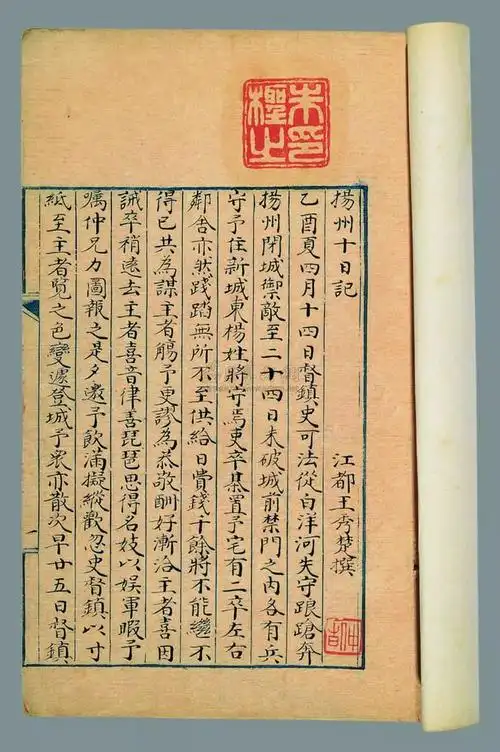 朱檉之印
揚州十日記
江都王秀楚撰
乙酉夏四月十四日督鎮史可法從白洋河失守踉蹌奔
揚州閉城禦敵至二十四日未破城前禁門之內各有兵
守予住新城東楊姓將守焉吏卒棊置予宅有二卒左右
鄰舍亦然踐踏無所不至供給日費錢千餘將不能繼不
得已共為謀主者觴予更謬為恭敬酬好漸洽主者喜因
誡卒稍遠去主者喜音律善琵琶思得名妓以娛軍暇予
囑仲兄力圖報之是夕邀予飲滿擬縱歡忽史督鎮以寸
紙至主者覽之色變遽登城予衆亦散次早廿五日督鎮